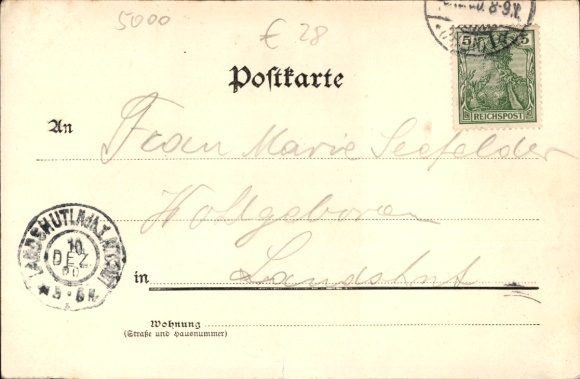 5000
€ 28
8-9.V.
5 5
REICHSPOST
Postkarte
An Frau Marie Seefelder
Wohlgeboren
in Landshut
LANDSHUT
10
DEZ
00
Wohnung
(Straße und Hausnummer)